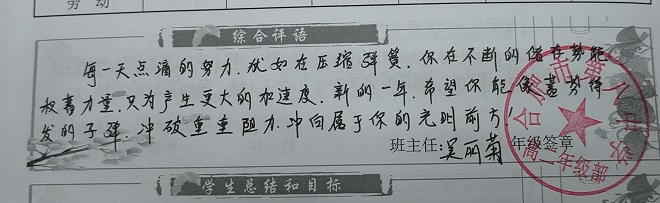 劳动
综合评语
每一天点滴的努力,犹如在压缩弹簧.你在不断的储存势能
积蓄力量,只为产生更大的加速度.新的一年,希望你能像蓄势待
发的子弹,冲破重重阻力,冲向属于你的光明前方
班主任:吴丽菊 年级签章
合肥市第八中学
高二年级部
学生总结和目标